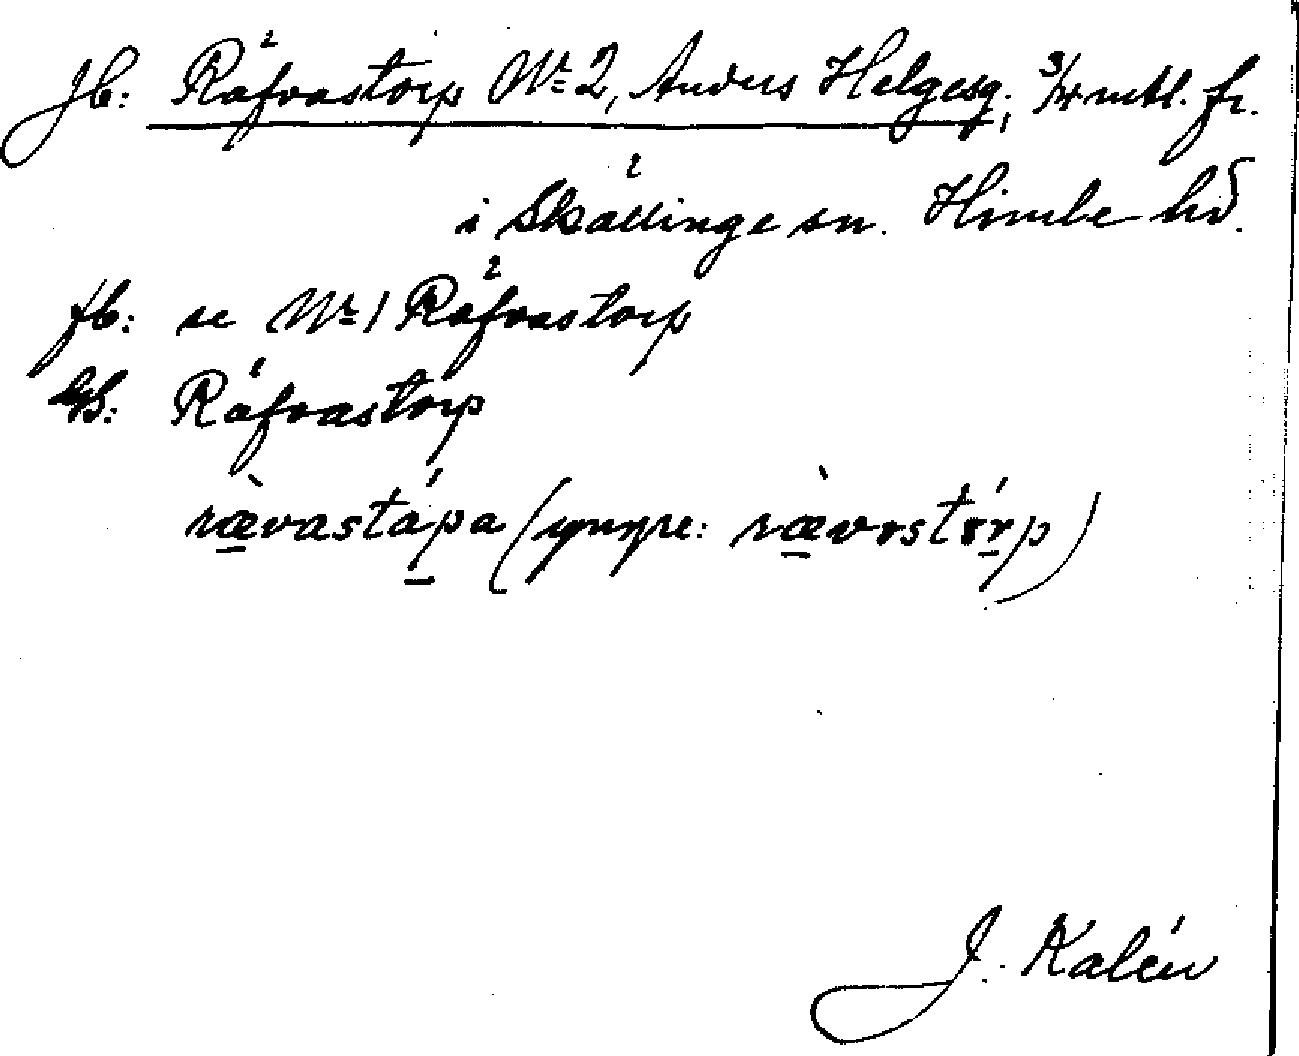 Jb: Räfvastorp Nr 2, Anders Helgesg; 3/4 mtl. fr.
i Skällinge sn. Himle hd.
fb: se Nr 1 Räfvastorp
Gb: Räfvastorp
rævastápa (yngre: rævastórp)
J. Kalén